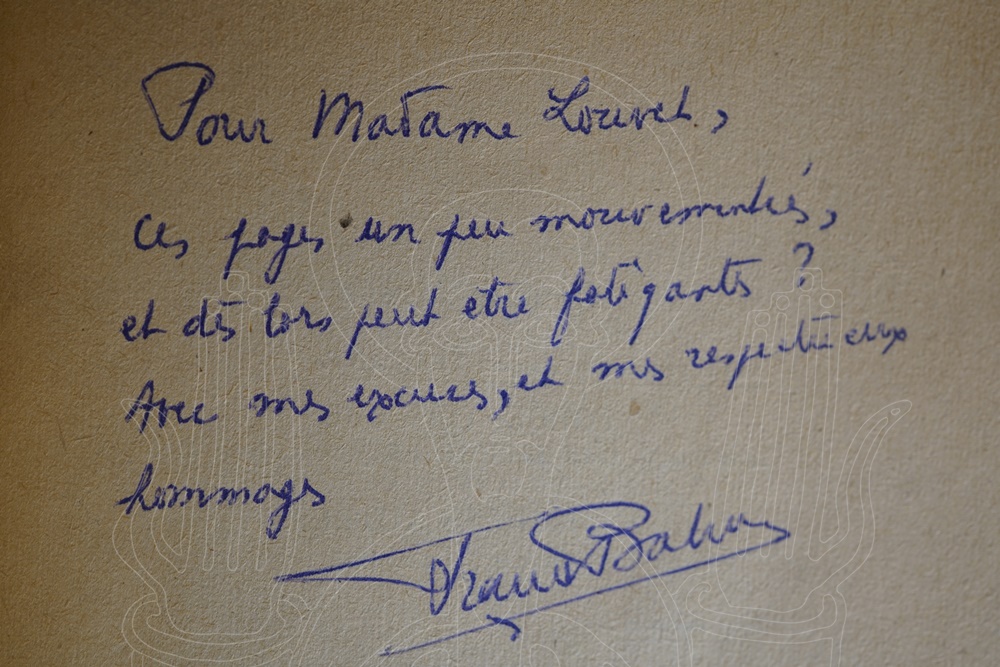 Pour Madame Louvet,
Ces pages un peu mouvementées,
et dès lors peut être fatigantes ?
Avec mes excuses, et mes respectueux
hommages